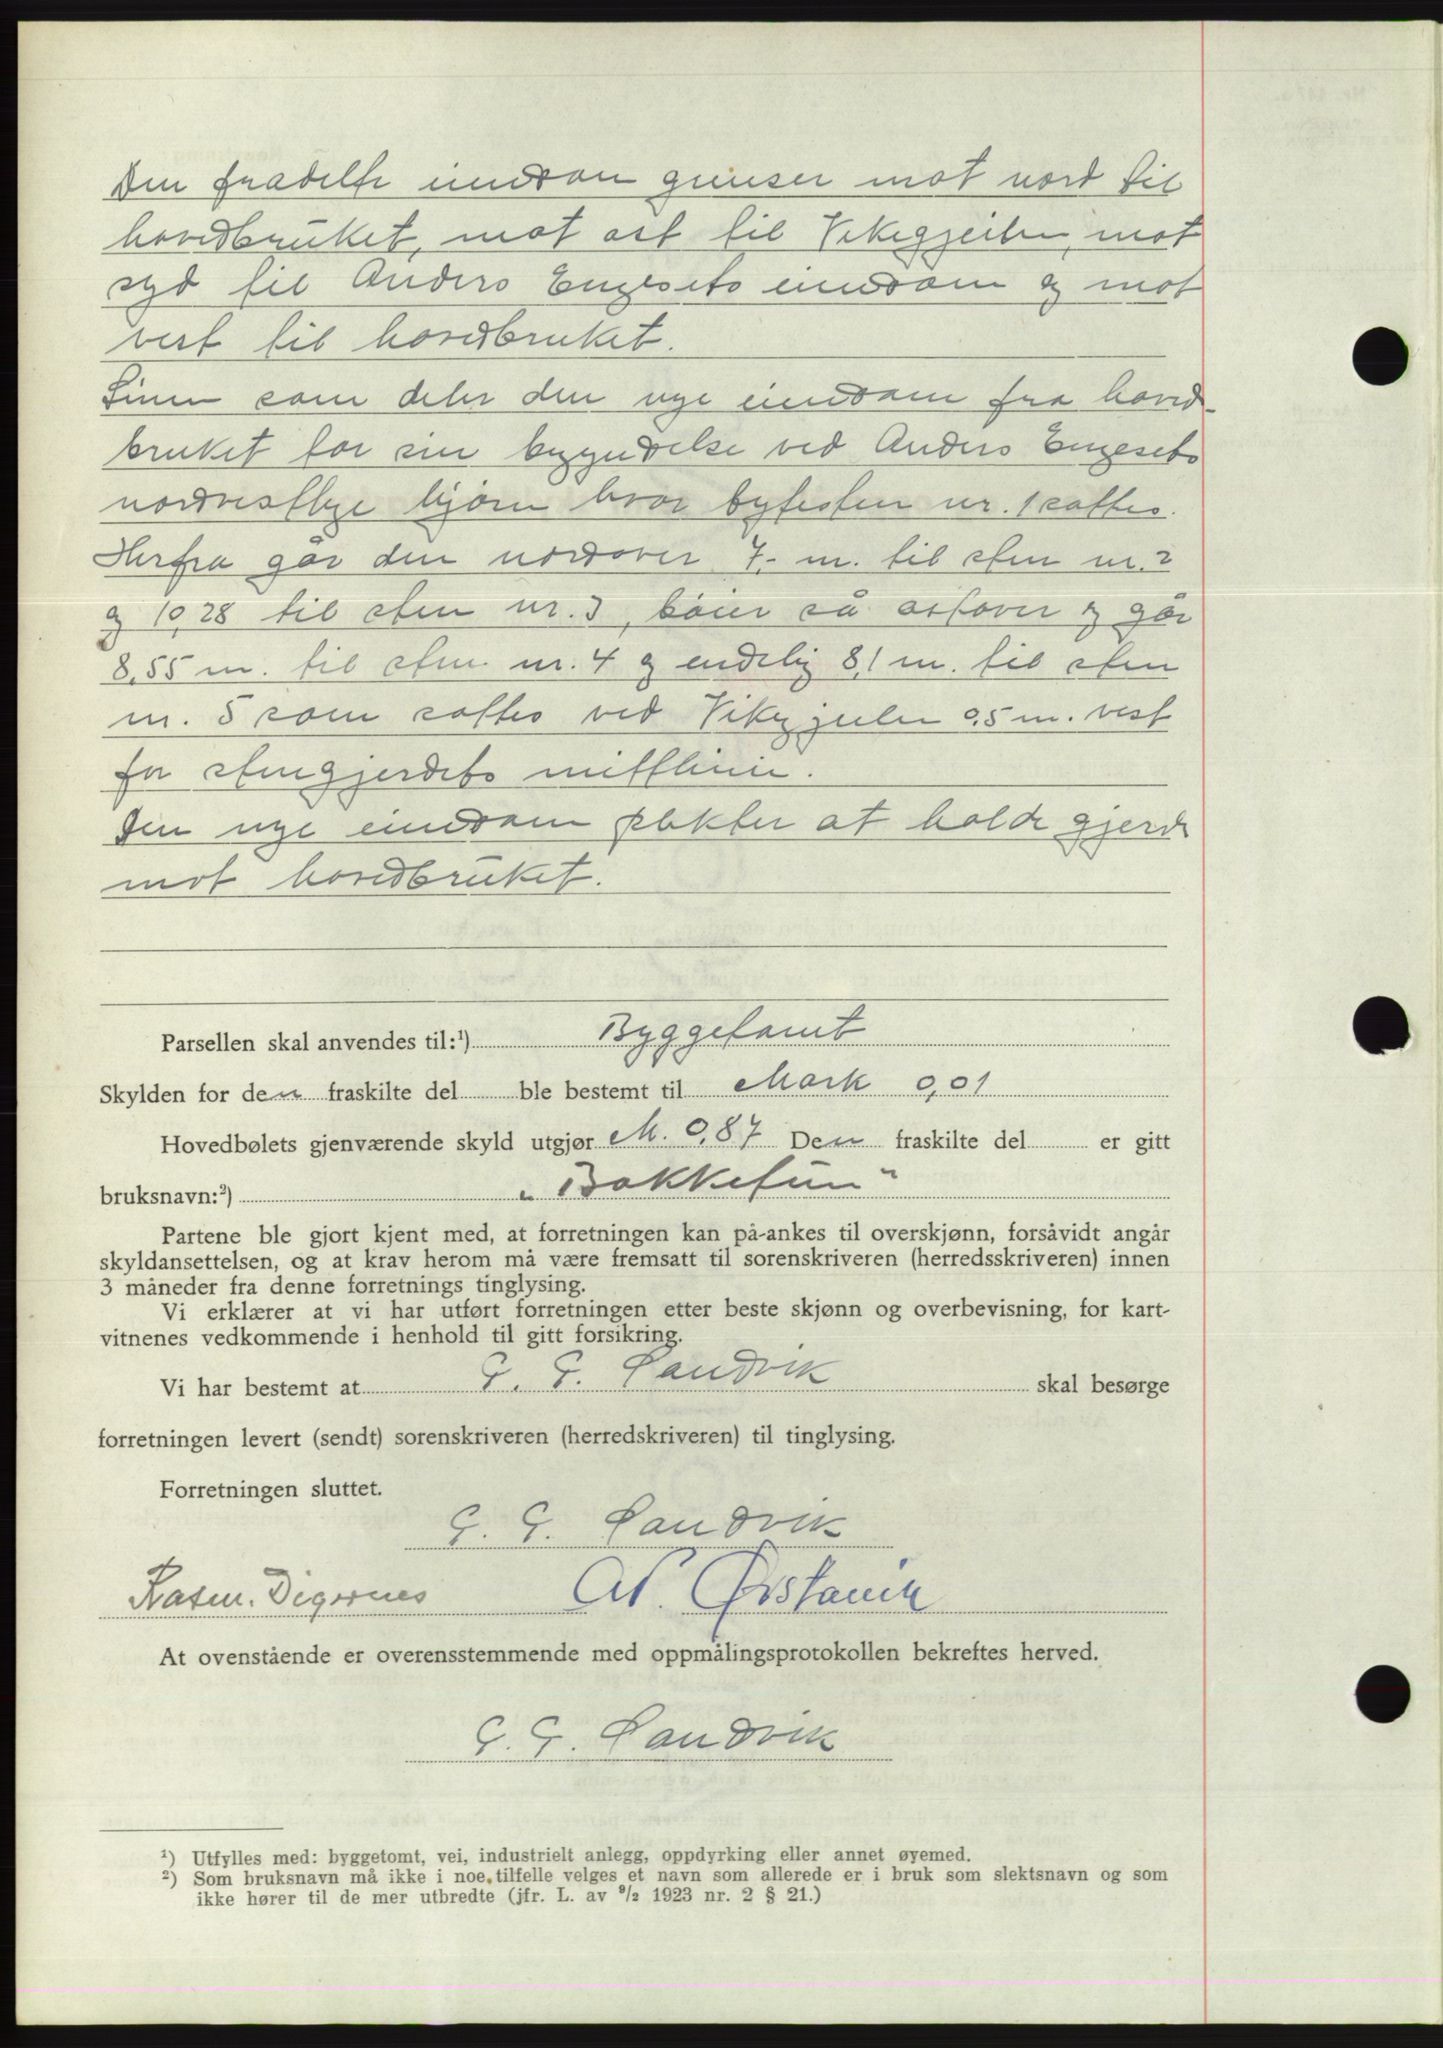 Den fradelte eiendom grenser mot nord til
hovedbruket, mot øst til Vikegjeilen, mot
syd til Anders Engesets eiendom og mot
vest til hovedbruket.
Linen som deler den nye eiendom fra hoved-
bruket tar sin begyndelse ved Anders Engesets
nordvestlige hjørn hvor bytesten nr. 1 sattes.
Herfra går den nordover 7,- m. til sten nr. 2
og 10,28 til sten nr. 3, bøier så østover og går
8,55 m. til sten nr. 4 og endelig 8,1 m. til sten
nr. 5 som sattes ved Vikegjeilen 0,5 m. vest
for stengjerdets mittlinie.
Den nye eiendom plikter at holde gjerde
mot hovedbruket.
Parsellen skal anvendes til:¹) Byggetomt
Skylden for den fraskilte del ble bestemt til Mark 0,01
Hovedbølets gjenværende skyld utgjør M. 0,87 Den fraskilte del er gitt
bruksnavn:²) „Bakketun"
Partene ble gjort kjent med, at forretningen kan på-ankes til overskjønn, forsåvidt angår
skyldansettelsen, og at krav herom må være fremsatt til sorenskriveren (herredsskriveren) innen
3 måneder fra denne forretnings tinglysing.
Vi erklærer at vi har utført forretningen etter beste skjønn og overbevisning, for kart-
vitnenes vedkommende i henhold til gitt forsikring.
Vi har bestemt at G. G. Sandvik skal besørge
forretningen levert (sendt) sorenskriveren (herredskriveren) til tinglysing.
Forretningen sluttet.
G. G. Sandvik
Rasm. Digernes A. P. Ørstavik
At ovenstående er overensstemmende med oppmålingsprotokollen bekreftes herved.
G. G. Sandvik
¹) Utfylles med: byggetomt, vei, industrielt anlegg, oppdyrking eller annet øyemed.
²) Som bruksnavn må ikke i noe tilfelle velges et navn som allerede er i bruk som slektsnavn og som
ikke hører til de mer utbredte (jfr. L. av ⁹/₂ 1923 nr. 2 § 21.)